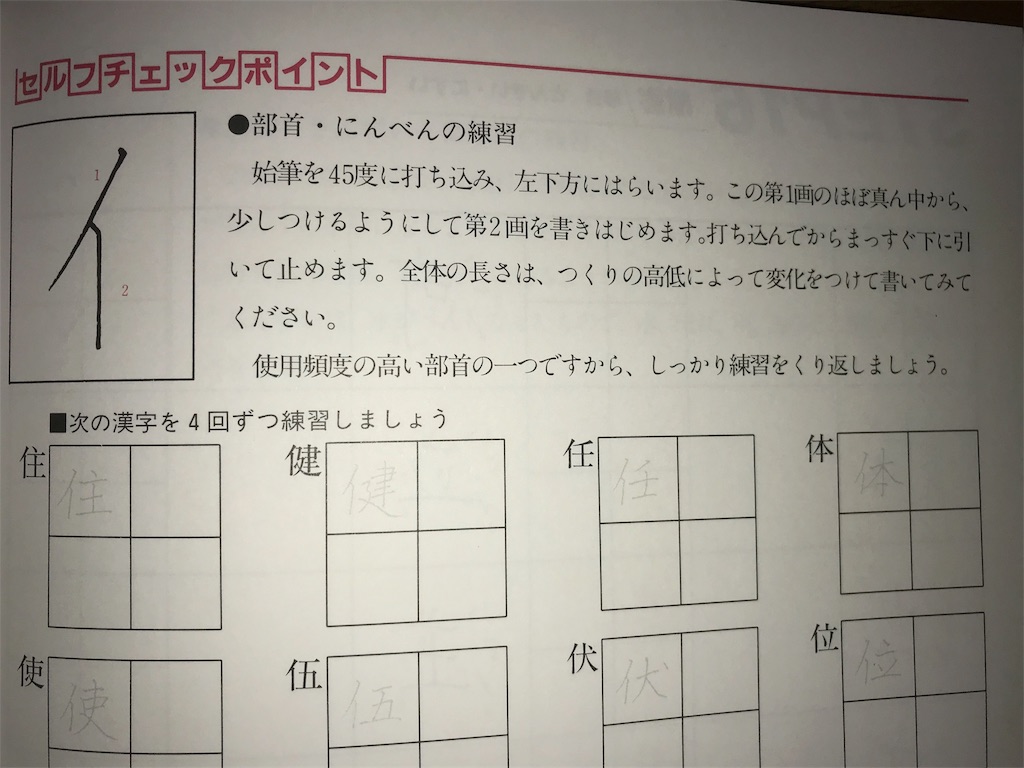 セルフチェックポイント
●部首・にんべんの練習
始筆を45度に打ち込み、左下方にはらいます。この第1画のほぼ真ん中から、
少しつけるようにして第2画を書きはじめます。打ち込んでからまっすぐ下に引
いて止めます。全体の長さは、つくりの高低によって変化をつけて書いてみて
ください。
使用頻度の高い部首の一つですから、しっかり練習をくり返しましょう。
イ
1
2
■次の漢字を4回ずつ練習しましょう
住 住 健 健 任 任 体 体
使 使 伍 伍 伏 伏 位 位